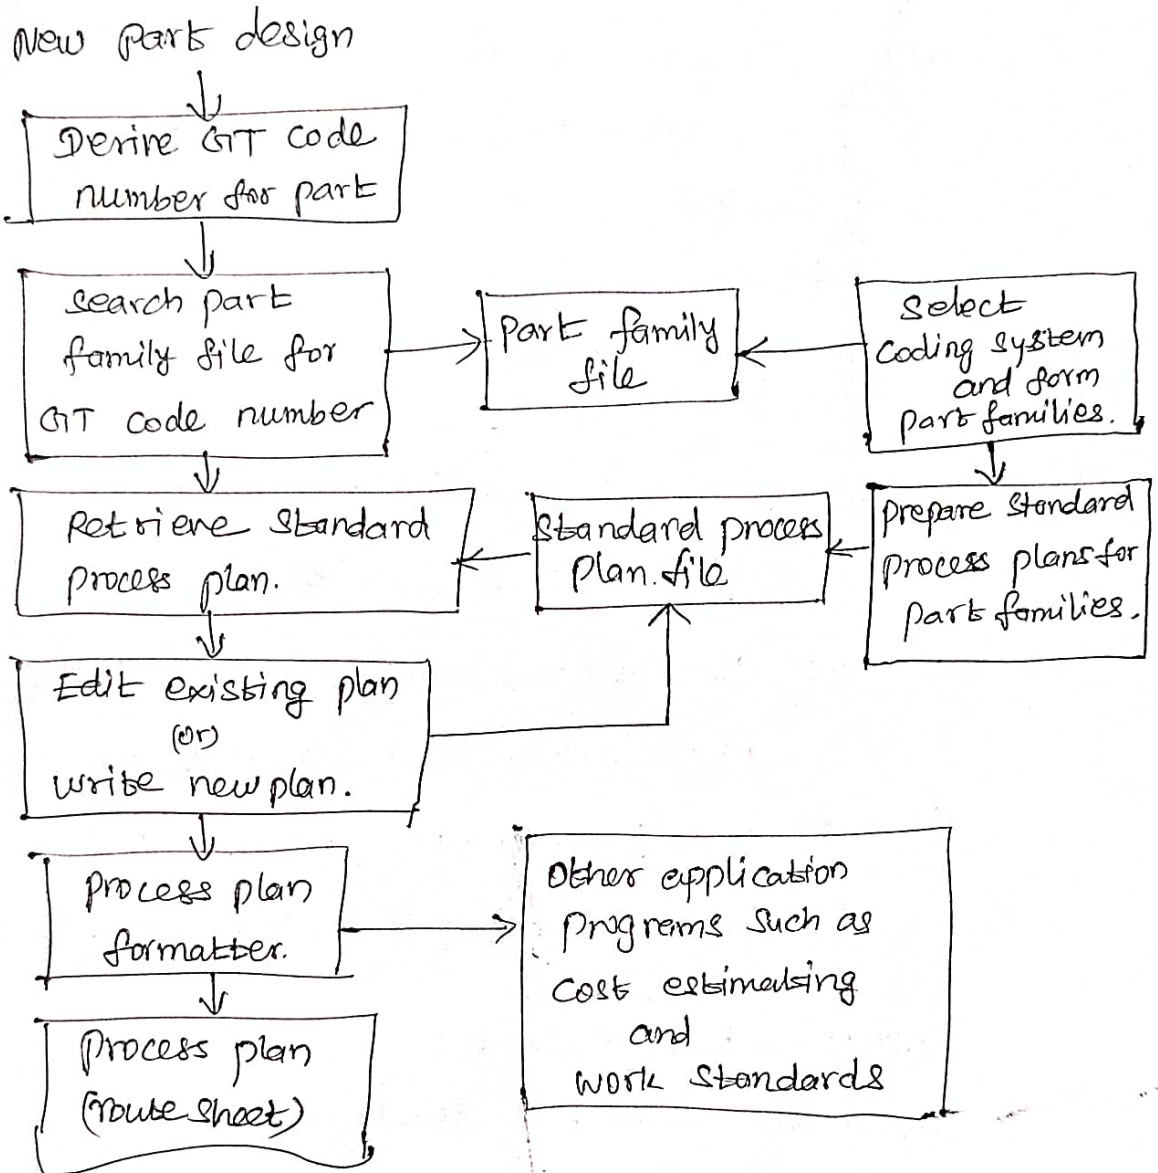 New part design
Derive GT code
number for part
Search part
family file for
GT code number
part family
file
Select
coding system
and form
part families.
Retrieve Standard
process plan.
Standard process
plan file
prepare standard
process plans for
part families.
Edit existing plan
(or)
write new plan.
process plan
formatter.
Other application
programs such as
cost estimating
and
work standards
process plan
(route sheet)